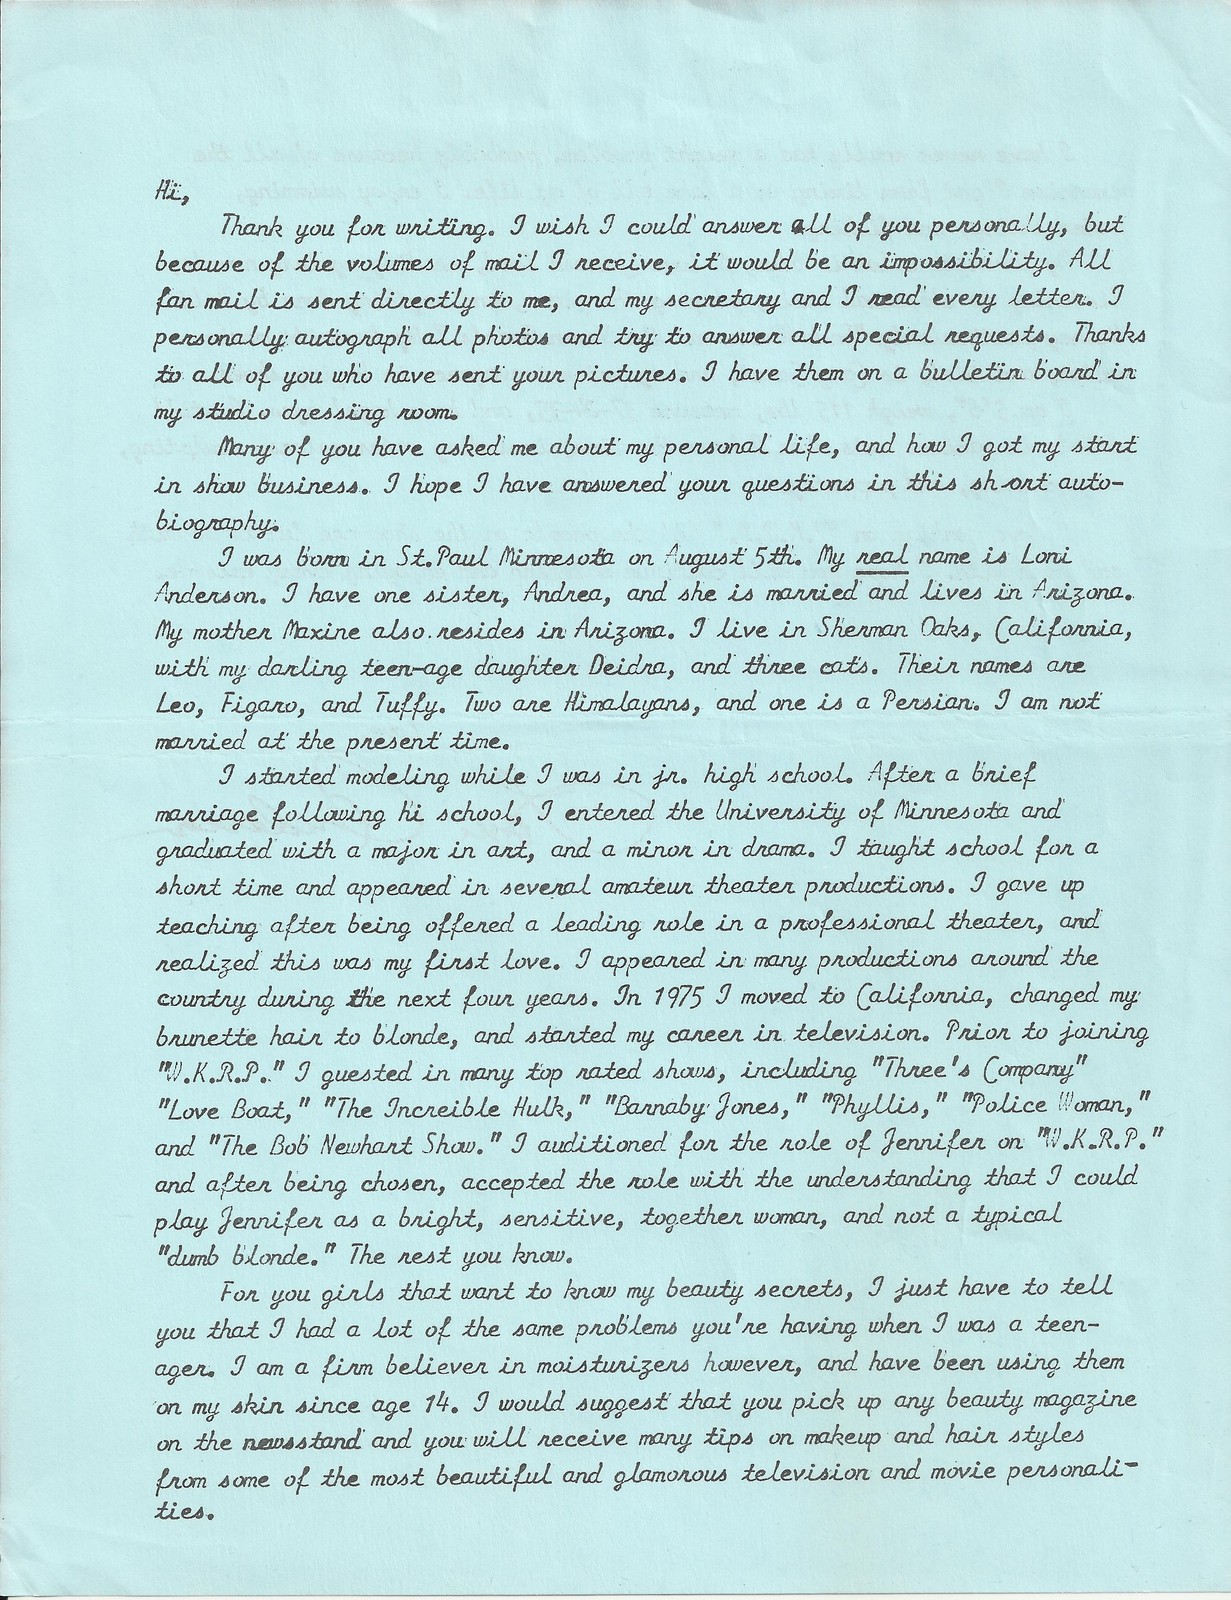 Hi,
Thank you for writing. I wish I could answer all of you personally, but
because of the volumes of mail I receive, it would be an impossibility. All
fan mail is sent directly to me, and my secretary and I read every letter. I
personally autograph all photos and try to answer all special requests. Thanks
to all of you who have sent your pictures. I have them on a bulletin board in
my studio dressing room.
Many of you have asked me about my personal life, and how I got my start
in show business. I hope I have answered your questions in this short auto-
biography.
I was born in St.Paul Minnesota on August 5th. My real name is Loni
Anderson. I have one sister, Andrea, and she is married and lives in Arizona.
My mother Maxine also resides in Arizona. I live in Sherman Oaks, California,
with my darling teen-age daughter Deidra, and three cats. Their names are
Leo, Figaro, and Tuffy. Two are Himalayans, and one is a Persian. I am not
married at the present time.
I started modeling while I was in jr. high school. After a brief
marriage following hi school, I entered the University of Minnesota and
graduated with a major in art, and a minor in drama. I taught school for a
short time and appeared in several amateur theater productions. I gave up
teaching after being offered a leading role in a professional theater, and
realized this was my first love. I appeared in many productions around the
country during the next four years. In 1975 I moved to California, changed my
brunette hair to blonde, and started my career in television. Prior to joining
"W.K.R.P." I guested in many top rated shows, including "Three's Company"
"Love Boat," "The Increible Hulk," "Barnaby Jones," "Phyllis," "Police Woman,"
and "The Bob Newhart Show." I auditioned for the role of Jennifer on "W.K.R.P."
and after being chosen, accepted the role with the understanding that I could
play Jennifer as a bright, sensitive, together woman, and not a typical
"dumb blonde." The rest you know.
For you girls that want to know my beauty secrets, I just have to tell
you that I had a lot of the same problems you're having when I was a teen-
ager. I am a firm believer in moisturizers however, and have been using them
on my skin since age 14. I would suggest that you pick up any beauty magazine
on the newsstand and you will receive many tips on makeup and hair styles
from some of the most beautiful and glamorous television and movie personali-
ties.